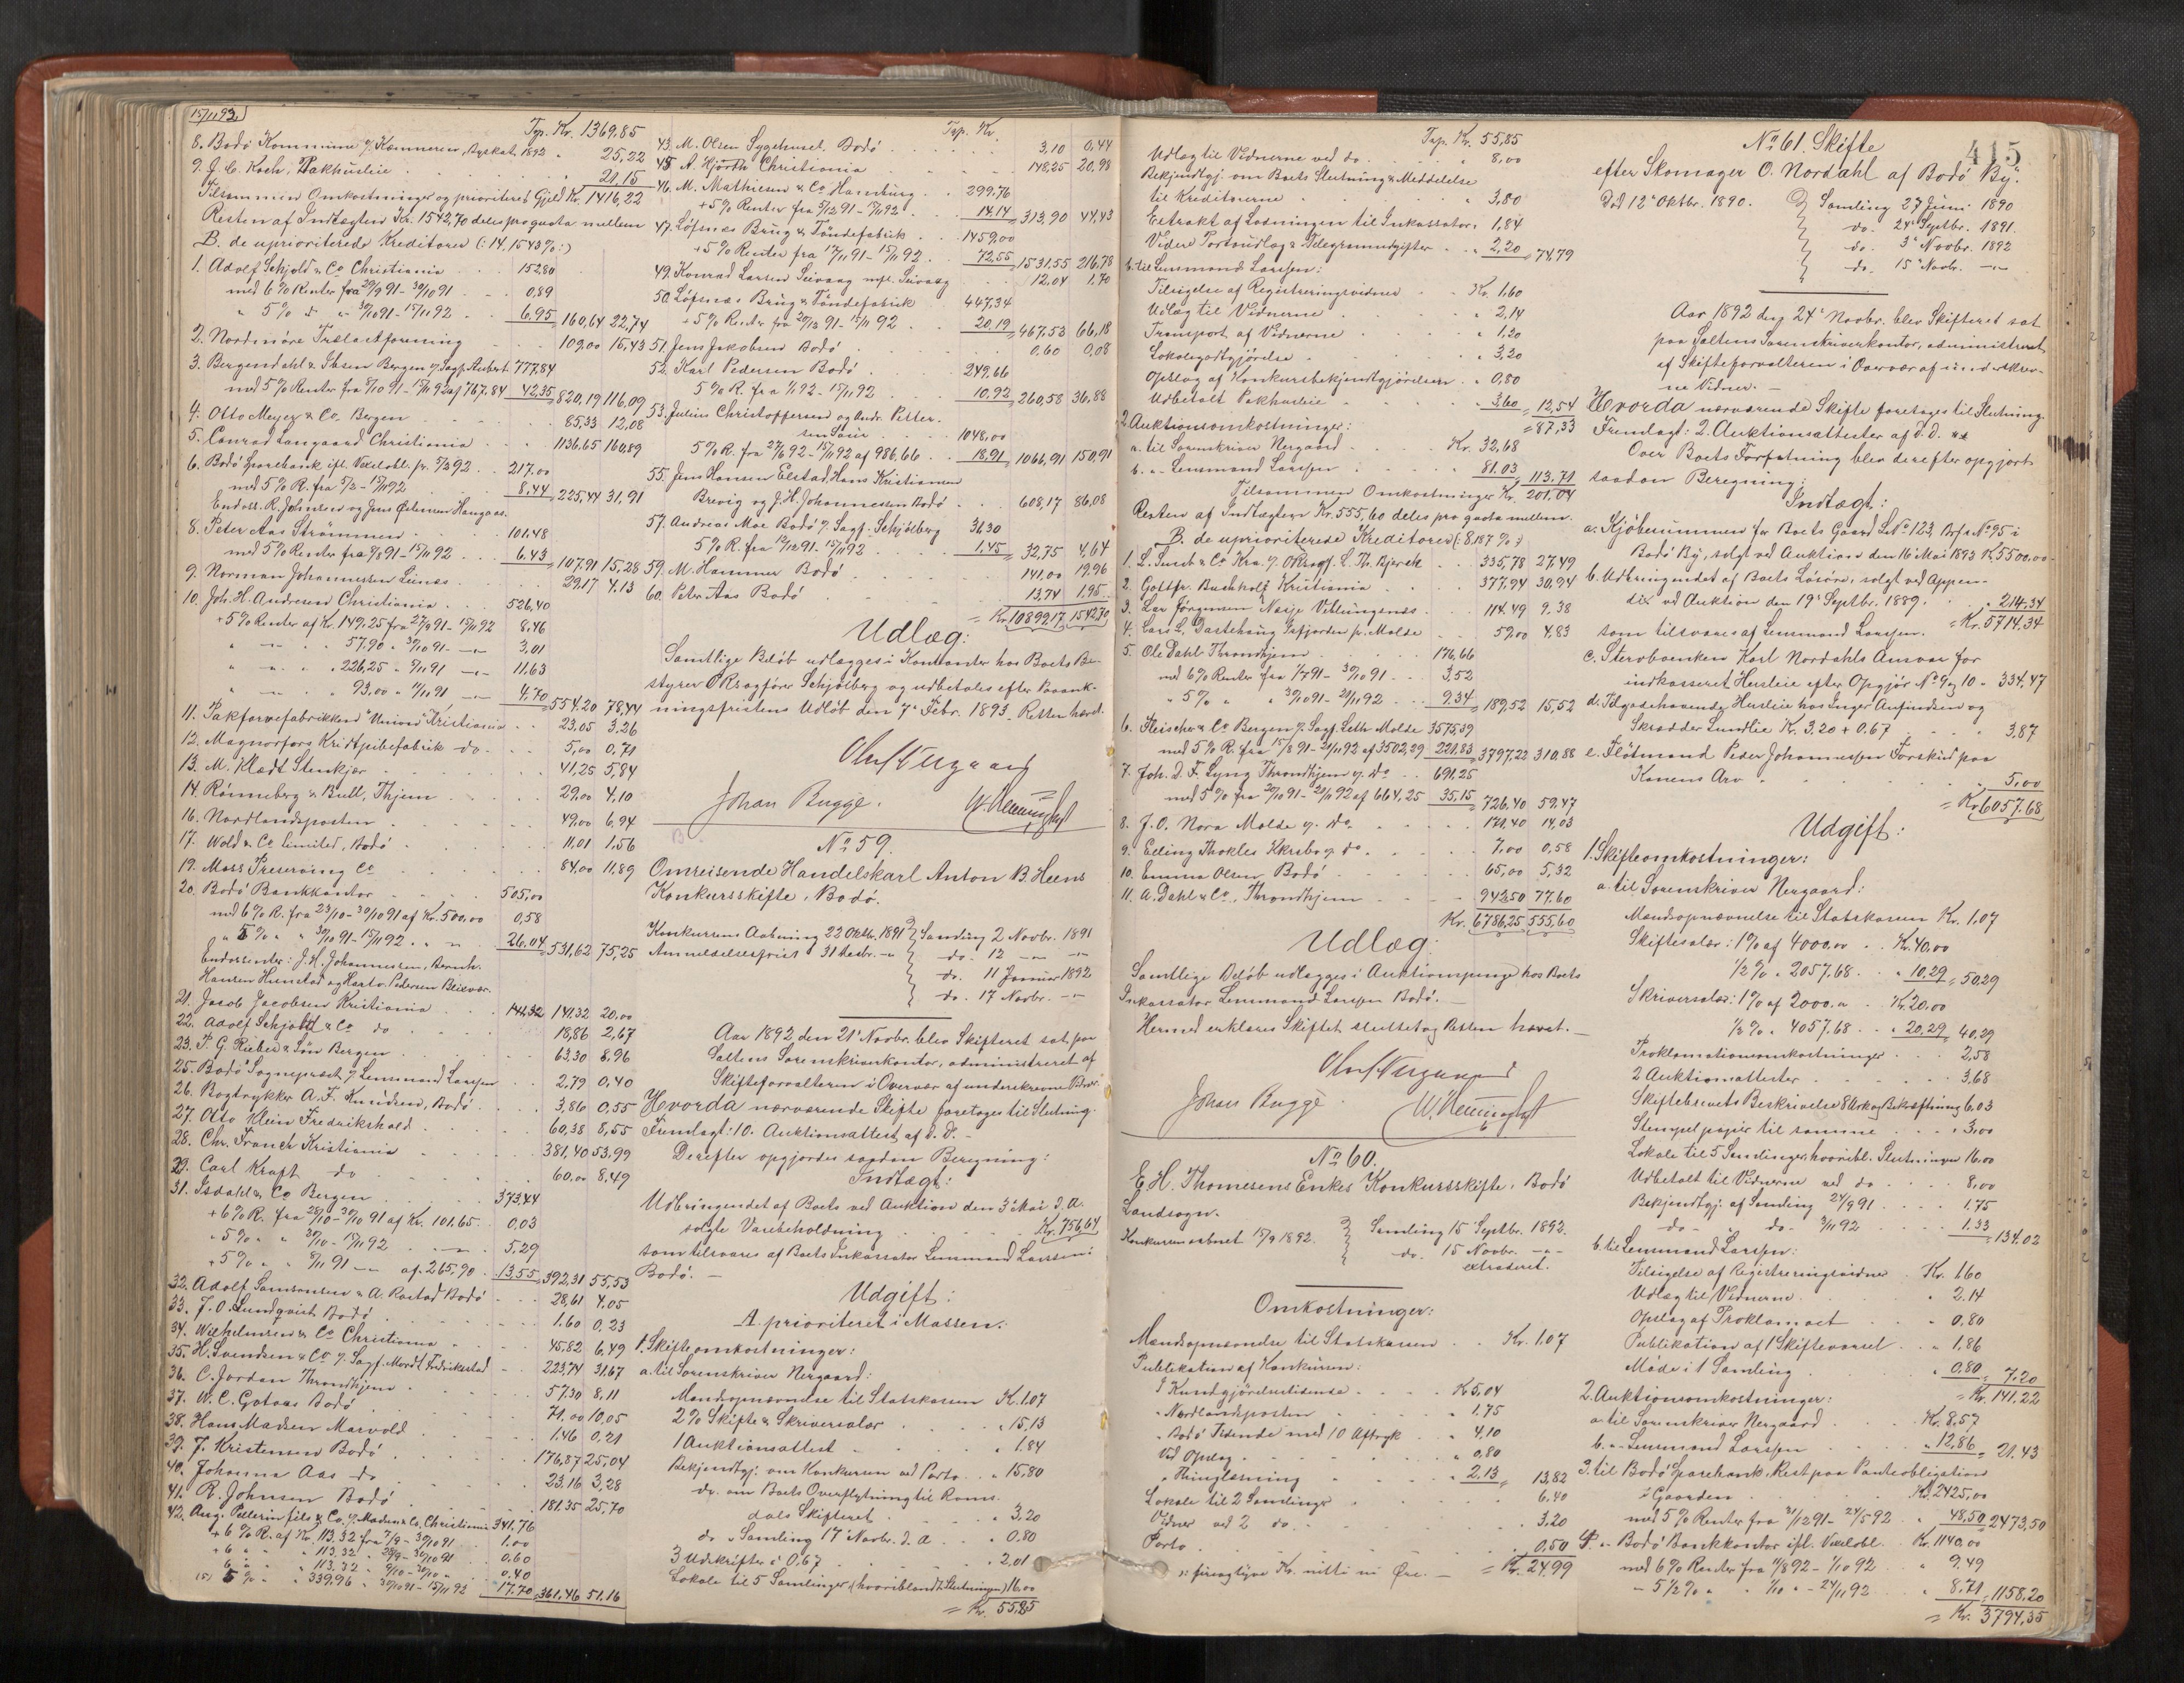 15/11 92
Tsp. Kr. 1369,85
8. Bodö Kommune v/ Kæmneren, Byskat 1892 " 25,22
9. J. C. Koch, Pakhusleie . . . 21,15
Tilsammen Omkostninger og prioriteret Gjeld Kr. 1416,22
Resten af Indtægten Kr. 1542,70 deles pro quota mellem
B. de uprioriterede Kreditorer (: 14,1543 % :)
1. Adolf Schjold & Co Christiania . . 152,80
med 6 % Renter fra 29/9 91 - 30/10 91 . . 0,89
" 5 % do " 30/10 91 - 15/11 92 . . 6,95 = 160,64 22,74
2. Nordmöre Trælastforening . . 109,00 15,43
3. Bergendahl & Ibsen Bergen v/ Sagf. Aubert 777,84
med 5 % Renter fra 8/10 91 - 15/11 92 af 767,84 42,35 = 820,19 116,09
4. Otto Meyer & Co. Bergen . . 85,33 12,08
5. Conrad Langaard Christiania . . 1136,65 160,89
6. Bodö Sparebank ifl. Vexelobl. pr. 5/3 92 . . 217,00
med 5 % R. fra 5/2 - 15/11 92 . . 8,44 = 225,44 31,91
Endoss. R. Johnsen og Jens Östensen Haugaas.
8. Peter Aas Strömmen . . 101,48
med 5 % Renter fra 8/8 91 - 15/11 92 . . 6,43 = 107,91 15,28
9. Norman Johannessen Leines . . 29,17 4,13
10. Joh. H. Andresen Christiania . . 526,40
+ 5 % Renter af Kr. 149,25 fra 27/9 91 - 15/11 92 8,46
" " " 57,90 " 30/10 91 - " 3,01
" " " 226,25 " 5/11 91 - " 11,63
" " " 93,00 " 11/11 91 - " 4,70 = 554,20 78,44
11. Pakfarvefabrikken "Union" Kristiania . . 23,05 3,26
12. Magnorfors Kridtpibefabrik do . . 5,00 0,71
13. M. Klædt Stenkjær . . 41,25 5,84
14. Rönneberg & Bull, Thjem . . 29,00 4,10
16. Nordlandsposten . . 49,00 6,94
17. Wold & Co Limited, Bodö . . 11,01 1,56
19. Moss Preserving Co . . 84,00 11,89
20. Bodö Bankkontor . . 505,00
med 6 % R. fra 23/10 - 30/10 91 af Kr. 500,00 0,58
" 5 % " " 30/10 91 - 15/11 92 . " " 26,04 = 531,62 75,25
Endossenter: J. H. Johannessen, Bernh.
Hansen Hunstad og Hartv. Pedersen Blixvær.
21. Jacob Jacobsen Kristiania . . 141,32 141,32 20,00
22. Adolf Schjold & Co do . . 18,86 2,67
23. P. G. Rieber & Sön Bergen . . 63,30 8,96
25. Bodö Sogneprest v/ Lensmand Larssen . . 2,79 0,40
26. Bogtrykker A. F. Knudsen, Bodö . . 3,86 0,55
27. Otto Klein Fredrikshald . . 60,38 8,55
28. Chr. Franck Kristiania . . 381,40 53,99
29. Carl Kraft do . . 60,00 8,49
31. Isdahl & Co Bergen . . 373,44
+ 6 % R. fra 28/10 - 30/10 91 af Kr. 101,65 . . 0,03
" 5 % " " 30/10 - 15/11 92 . " 5,29
+ 5 % " " 8/11 91 - " af 265,90 . 13,55 = 392,31 55,53
32. Adolf Samsonsen & A. Rostad Bodö . . 28,61 4,05
33. J. O. Lundqvist Bodö . . 1,60 0,23
34. Wilhelmsen & Co Christiania . . 45,82 6,49
35. H. Svendsen & Co v/ Sagf. Mordt Fredrikstad . . 223,74 31,67
36. C. Jordan Throndhjem . . 57,30 8,11
37. W. C. Gotaas Bodö . . 71,00 10,05
38. Hans Madsen Marvold . . 1,46 0,21
39. J. Kristensen Bodö . . 176,87 25,04
40. Johanna Aas do . . 23,16 3,28
41. R. Johnsen Bodö . . 181,35 25,70
42. Aug. Pellerin fils & Co. v/ Madsen & Co, Christiania 341,76
+ 6 % R. af Kr. 113,32 fra 7/9 - 30/10 91 . . 1,00
+ 6 " " " 113,32 " 28/9 - 30/10 91 . . 0,60
6 " " " 113,32 " 9/10 - 30/10 " . . 0,40
(5) 5 % " " 339,96 " 30/10 91 - 15/11 92 17,70 = 361,46 51,16
Tsp. Kr.
43. M. Olsen Sygehuset, Bodö . . 3,10 0,44
45. A. Hjorth Christiania . . 148,25 20,98
46. M. Mathiesen & Co Hamburg . . 299,76
+ 5 % Renter fra 5/12 91 - 15/11 92 . . 14,14 = 313,90 44,43
47. Löfsnæs Brug & Töndefabrik . . 1459,00
+ 5 % Renter fra 17/11 91 - 15/11 92 . . 72,55 = 1531,55 216,78
49. Konrad Larsen Seivaag . . 12,04 1,70
50. Löfsnæs Brug & Töndefabrik . . 447,34
+ 5 % Renter fra 20/12 91 - 15/11 92 . . 20,19 = 467,53 66,18
51. Jens Jakobsen Bodö . . 0,60 0,08
52. Karl Pedersen Bodö . . 249,66
5 % R. fra 1/1 92 - 15/11 92 . . 10,92 = 260,58 36,88
53. Julius Christoffersen og Andr. Petter-
sen Saur . . 1048,00
5 % R. fra 27/6 92 - 15/11 92 af 986,66 . . 18,91 = 1066,91 150,91
55. Jens Hansen Elstad, Hans Kristiansen
Brevig og J. H. Johannessen Bodö . . 608,17 86,08
57. Andreas Moe Bodö v/ Sagf. Schjölberg 31,30
5 % R. fra 12/12 91 - 15/11 92 . . 1,45 = 32,75 4,64
59. M. Hammer Bodö . . 141,00 19,96
60. Peter Aas Bodö . . 13,74 1,95
= Kr. 10899,17 1542,70
Udlæg:
Samtlige Belöb udlægges i Kontanter hos Boets Be-
styrer O.Rsagförer Schjölberg og udbetales efter Paaank-
ningsfristens Udlöb den 7de Febr. 1893. Retten hævet.
Olaf Nergaard
Johan Bugge.
No 59.
Omreisende Handelskarl Anton B. Heens
Konkursskifte, Bodö.
Konkursens Aabning 22 Oktbr. 1891 Samling 2 Novbr. 1891
Anmeldelsesfrist 31 Decbr. - " do. 12 - " -
do. 11 Januar 1892
do. 17 Novbr. - " -
Aar 1892 den 21de Novbr. blev Skifteret sat paa
Saltens Sorenskriverkontor, administreret af
Skifteforvalteren i Overvær af underskrevne Vidner.
Hvorda nærværende Skifte foretoges til Slutning.
Fremlagt: 10. Auktionsattest af d. D. -
Derefter opgjordes saadan Beregning:
Indtægt:
Udbringendet af Boets ved Auktion den 3de Mai d. A.
solgte Varebeholdning . . Kr. 756,64
som tilsvares af Boets Inkassator Lensmand Larssen:
Bodö. -
Udgift:
A. prioriteret i Massen.
1. Skifteomkostninger:
a. til Sorenskriver Nergaard:
Mandsopnævnelse til Statskassen K. 1,07
2 % Skifte & Skriversalær . . " 15,13
1 Auktionsattest . . " 1,84
Bekjendtgj. om Konkursen ved Porto . . " 15,80
do. om Boets Overflytning til Roms-
dals Skifteret . . " 3,20
do " Samling 17 Novbr. d. a . . " 0,80
3 Udskrifter à 0,67 . . " 2,01
Lokale til 5 Samlinger (hvoriblandt Slutningen) 16,00
= Kr. 55,85
Tsp. Kr. 55,85
Udlæg til Vidnerne ved do . . " 8,00
Bekjendtgj. om Boets Slutning & Meddelelse
til Kreditorerne . . " 3,80
Extrakt af Losningen til Inkassator " 1,84
Videre Portoudlæg & Telegramudgifter . . " 2,20 = 74,79
b. til Lensmand Larssen:
Tilsigelse af Registreringsvidner . . Kr. 1,60
Udlæg til Vidnerne . . " 2,14
Transport af Vidnerne . . " 1,20
Lokalegodtgjörelse . . " 3,20
Opslag af Konkursbekjendtgjörelsen . . " 0,80
Udbetalt Pakhusleie . . " 3,60 = 12,54
= 87,33
2. Auktionsomkostninger:
a. til Sorenskriver Nergaard . . Kr. 32,68
b. " Lensmand Larssen . . 81,03 = 113,71
Tilsammen Omkostninger Kr. 201,04
Resten af Indtægten Kr. 555,60 deles pro quota mellem.
B. de uprioriterede Kreditorer (: 8,187 % :)
1. L. Lunch & Co Kra. v/ O.Rsagf. L. Th. Bjerck . . 335,78 27,49
2. Gottfr. Buchholz Kristiania . . 377,94 30,94
3. Lar Jörgensen Nasje Vitlingenæs . . 114,49 9,38
4. Lars L. Dastehaug Isfjorden pr. Molde . . 59,00 4,83
5. Ole Dahl Throndhjem . . 176,66
med 6 % Renter fra 1/7 91 - 30/10 91 . . 3,52
" 5 % " " 30/10 91 - 21/11 92 . . 9,34 = 189,52 15,52
6. Fleischer & Co Bergen v/ Sagf. Leth Molde 3575,39
med 5 % R. fra 15/8 91 - 21/11 92 af 3502,29 221,83 = 3797,22 310,88
7. Joh. D. F. Lyng Throndhjem v. do . . 691,25
med 5 % fra 30/10 91 - 21/11 92 af 664,25 35,15 = 726,40 59,47
8. J. O. Nora Molde v. do . . 171,40 14,03
9. Erling Thokles v. do . . 7,00 0,58
10. Emma Olsen Bodö . . 65,00 5,32
11. A. Dahl & Co., Throndhjem . . 942,50 77,60
Kr. 6786,25 555,60
Udlæg:
Samtlige Belöb udlægges i Auktionspenge hos Boets
Inkassator Lensmand Larssen Bodö. -
Hermed erklæres Skiftet sluttet og Retten hævet. -
Olaf Nergaard
Johan Bugge.
No 60.
E. H. Thomesens Enkes Konkursskifte, Bodö
Landsogn.
Konkursen aabnet 15/9 1892. Samling 15 Septbr. 1892.
do. 15 Novbr. - " -
extraderet.
Omkostninger:
Mandsopnævnelse til Statskassen . . Kr. 1,07
Publikation af Konkursen:
I Kundgjörelsestidende . . Kr 5,04
" Nordlandsposten . . " 1,75
" Bodö Tidende med 10 Aftryk . . " 4,10
Ved Opslag . . " 0,80
" Thinglæsning . . " 2,13 = 13,82
Lokale til 2 Samlinger . . 6,40
Vidner ved 2 do . . 3,20
Porto . . 0,50
: firogtyve Kr. nitti ni Öre. - = Kr. 24,99
415
No 61. Skifte
efter Skomager O. Nordahl af Bodö By.
Död 12te Oktbr. 1890. Samling 27 Juni 1890
do. 24de Septbr. 1891.
do. 3de Novbr. 1892
do. 15de Novbr. - " -
Aar 1892 den 24de Novbr. blev Skifteret sat
paa Saltens Sorenskriverkontor, administreret
af Skifteforvalteren i Overvær af underskrev-
ne Vidner. -
Hvorda nærværende Skifte foretoges til Slutning
Fremlagt: 2. Auktionsattester af d. d.
Over Boets Forfatning blev derefter opgjort
saadan Beregning:
Indtægt:
a. Kjöbesummen for Boets Gaard L. No 123, Brf. No 95 i
Bodö By, solgt ved Auktion den 16de Mai 1893 K. 5500,00
b. Udbringendet af Boets Lösöre, solgt ved Appen-
dix ved Auktion den 19de Septbr. 1889. . 214,34
som tilsvares af Lensmand Larssen. = Kr. 5714,34
c. Stervboenken Karl Nordahls Ansvar for
indkasseret Husleie efter Opgjör No 9 og 10 - 334,47
d. Tilgodehavende Husleie hos Inger Anfindsen og
Skrædder Lundlie K. 3,20 + 0,67 . . 3,87
e. Flötmand Peder Johannessen Forskud paa
Konens Arv . . 5,00
= Kr. 6057,68
Udgift:
1. Skifteomkostninger:
a. til Sorenskriver Nergaard:
Mandsopnævnelse til Statskassen Kr. 1,07
Skiftesalær: 1 % af 4000,00 . . Kr. 40,00
1/2 % " 2057,68 . . " 10,29 = 50,29
Skriversalær: 1 % af 2000,00 . Kr. 20,00
1/2 % " 4057,68 . . " 20,29 = 40,29
Proklamationsomkostninger . . 2,58
2 Auktionsattester . . 3,68
Skiftebrevets Beskrivelse 8 Ark og Bekræftning 6,03
Stempelpapir til samme . . 3,00
Lokale til 5 Samlinger, hvoribl. Slutningen 16,00
Udbetalt til Vidnerne ved do . . 8,00
Bekjendtgj. af Samling 24/9 91 . . 1,75
do - do - 3/11 92 . . 1,33
= 134,02
b. til Lensmand Larssen:
Tilsigelse af Registreringsvidner . Kr. 1,60
Udlæg til Vidnerne . . " 2,14
Opslag af Proklamaet . . " 0,80
Publikation af 1 Skiftevarsel . . " 1,86
Möde i 1 Samling . . " 0,80 = 7,20
= Kr. 141,22
2. Auktionsomkostninger:
a. til Sorenskriver Nergaard . . Kr. 8,57
b. " Lensmand Larssen . . " 12,86 = 21,43
3. til Bodö Sparebank, Rest paa Panteobligation
i Gaarden . . Kr. 2425,00
med 5 % Renter fra 31/12 91 - 24/5 92 . " 48,50 = 2473,50
4. " Bodö Bankkontor ifl. Vexelobl. Kr. 1140,00
med 6 % Renter fra 11/8 92 - 1/10 92 . " 9,49
" 5 1/2 % " " 1/10 " - 24/11 92 . " 8,71 = 1158,20
= Kr. 3794,35